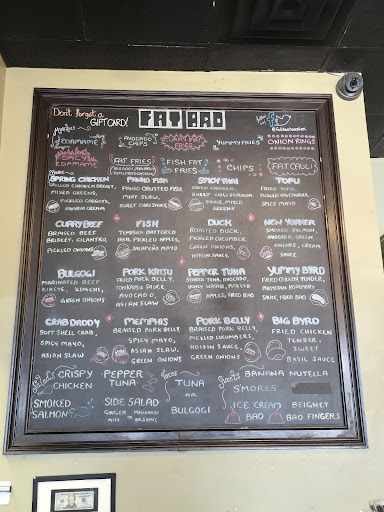 Don't forget a
GIFTCARD!
FAT BAO
EDAMAME
SPICY
EDAMAME
AVOCADO
CHIPS
CURRY FAT
FRIES
YUMMY FRIES
ONION RINGS
FAT FRIES
FISH FAT
FRIES
CHIPS
FAT CAULI
SPRING CHICKEN
GRILLED CHICKEN BREAST,
MIXED GREENS,
PICKLED CARROTS,
PANKO FISH
PANKO CRUSTED FISH
MINT SLAW,
SWEET CHILI SAUCE
FRIED CHICKEN,
TOFU
FRIED TOFU,
PICKLED VEGETABLES,
SPICY MAYO
CURRY BEEF
BRAISED BEEF
BRISKET, CILANTRO,
PICKLED ONIONS
FISH
TEMPURA BATTERED
FISH, PICKLED APPLES,
JALAPEÑO MAYO
DUCK
ROASTED DUCK,
PICKLED CUCUMBER,
GREEN ONIONS,
HOISIN SAUCE
NEW YORKER
SMOKED SALMON,
AVOCADO, GREEN
ONIONS, CREAM
SAUCE
BULGOGI
MARINATED BEEF
RIBEYE, KIMCHI,
GREEN ONIONS
PORK KATSU
FRIED PORK BELLY,
TONKATSU SAUCE
AVOCADO,
ASIAN SLAW
PEPPER TUNA
SEARED TUNA, AVOCADO,
HONEY WASABI, PICKLED
APPLES, FRIED BAO
YUMMY BYRD
FRIED CHICKEN TENDER,
SAUCE, FRIED BAO
CRAB DADDY
SOFT SHELL CRAB,
SPICY MAYO,
ASIAN SLAW
MEMPHIS
BRAISED PORK BELLY
SPICY MAYO,
ASIAN SLAW,
GREEN ONIONS
PORK BELLY
BRAISED PORK BELLY,
PICKLED CUCUMBERS,
HOISIN SAUCE,
GREEN ONIONS
BIG BYRD
FRIED CHICKEN
TENDER,
SWEET
BASIL SAUCE
CRISPY
CHICKEN
SMOKED
SALMON
PEPPER
TUNA
SIDE SALAD
GINGER
MISO OR
Tacos
TUNA
OR
BULGOGI
BANANA NUTELLA
S'MORES
ICE CREAM
BAO
BEIGNET
BAO FINGERS